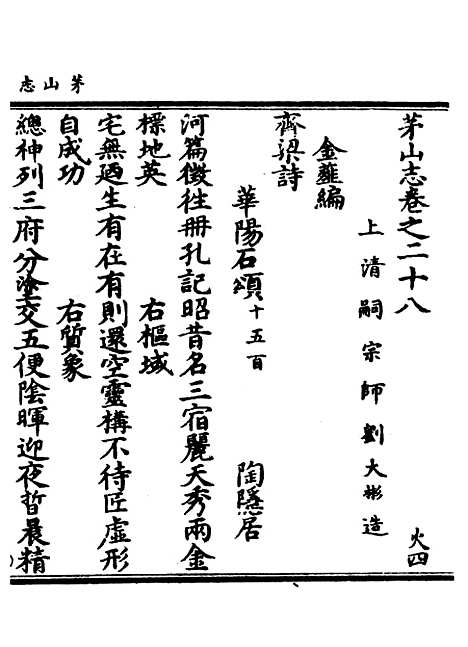 茅山志
茅山志卷之二十八
火四
上清嗣宗師劉大彬造
金薤編
齊梁詩
華陽石頌十五百 陶隱居
河篇徵往冊孔記昭昔名三宿麗天秀兩金
標地英 右樞域
宅無乃生有在有則還空靈構不待匠虛形
自成功 右質象
總神列三府分塗交五便陰暉迎夜晢晨精